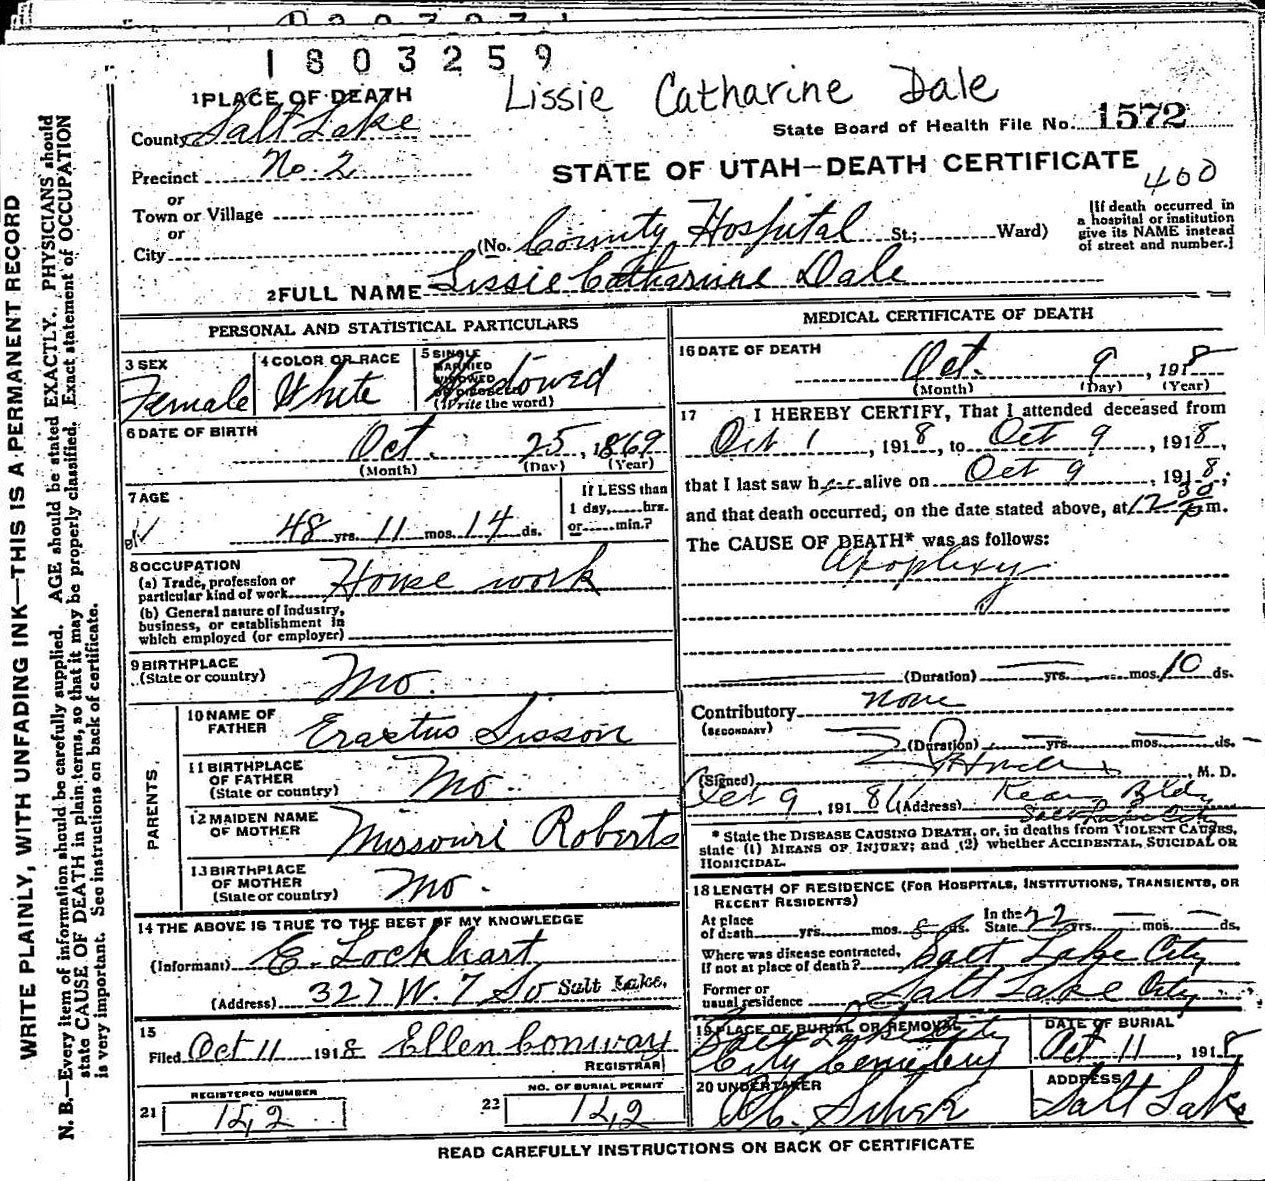 1803259
Lissie Catharine Dale
1 PLACE OF DEATH
County Salt Lake
State Board of Health File No. 1572
Precinct No. 2
STATE OF UTAH—DEATH CERTIFICATE
400
or
Town or Village
or
City
(No. County Hospital St.; Ward)
[If death occurred in
a hospital or institution
give its NAME instead
of street and number.]
2 FULL NAME Lissie Catharine Dale
PERSONAL AND STATISTICAL PARTICULARS
3 SEX
Female
4 COLOR OR RACE
White
5 SINGLE
MARRIED
WIDOWED
OR DIVORCED
(Write the word)
Widowed
6 DATE OF BIRTH
Oct. 25, 1869
(Month) (Day) (Year)
7 AGE
48 yrs. 11 mos. 14 ds.
If LESS than
1 day, hrs.
or min.?
8 OCCUPATION
(a) Trade, profession or
particular kind of work House work
(b) General nature of Industry,
business, or establishment in
which employed (or employer)
9 BIRTHPLACE
(State or country) Mo.
PARENTS
10 NAME OF
FATHER Erastus Sisson
11 BIRTHPLACE
OF FATHER
(State or country) Mo.
12 MAIDEN NAME
OF MOTHER Missouri Roberts
13 BIRTHPLACE
OF MOTHER
(State or country) Mo.
14 THE ABOVE IS TRUE TO THE BEST OF MY KNOWLEDGE
(Informant) E. Lockhart
(Address) 327 W. 7 So Salt Lake.
15
Filed Oct 11 1918 Ellen Conway
REGISTRAR
21
REGISTERED NUMBER
22
NO. OF BURIAL PERMIT
MEDICAL CERTIFICATE OF DEATH
16 DATE OF DEATH
Oct. 9, 1918
(Month) (Day) (Year)
17 I HEREBY CERTIFY, That I attended deceased from
Oct 1, 1918, to Oct 9, 1918,
that I last saw her alive on Oct 9, 1918;
and that death occurred, on the date stated above, at 12 30 p m.
The CAUSE OF DEATH* was as follows:
Apoplexy
(Duration) yrs. mos. 10 ds.
Contributory none
(SECONDARY)
(Duration) yrs. mos. ds.
(Signed) M. D.
Oct 9, 1918 (Address) Bldg
Salt Lake City
* State the DISEASE CAUSING DEATH, or, in deaths from VIOLENT CAUSES,
state (1) MEANS OF INJURY; and (2) whether ACCIDENTAL, SUICIDAL OR
HOMICIDAL.
18 LENGTH OF RESIDENCE (FOR HOSPITALS, INSTITUTIONS, TRANSIENTS, OR
RECENT RESIDENTS)
At place
of death yrs. mos. 8 ds.
In the
State 22 yrs. mos. ds.
Where was disease contracted,
if not at place of death? Salt Lake City
Former or
usual residence Salt Lake City
19 PLACE OF BURIAL OR REMOVAL
Salt Lake City
City Cemetery
DATE OF BURIAL
Oct 11, 1918
20 UNDERTAKER
ADDRESS
Salt Lake
READ CAREFULLY INSTRUCTIONS ON BACK OF CERTIFICATE
WRITE PLAINLY, WITH UNFADING INK—THIS IS A PERMANENT RECORD
N. B.—Every item of information should be carefully supplied. AGE should be stated EXACTLY. PHYSICIANS should
state CAUSE OF DEATH in plain terms, so that it may be properly classified. Exact statement of OCCUPATION
is very important. See instructions on back of certificate.